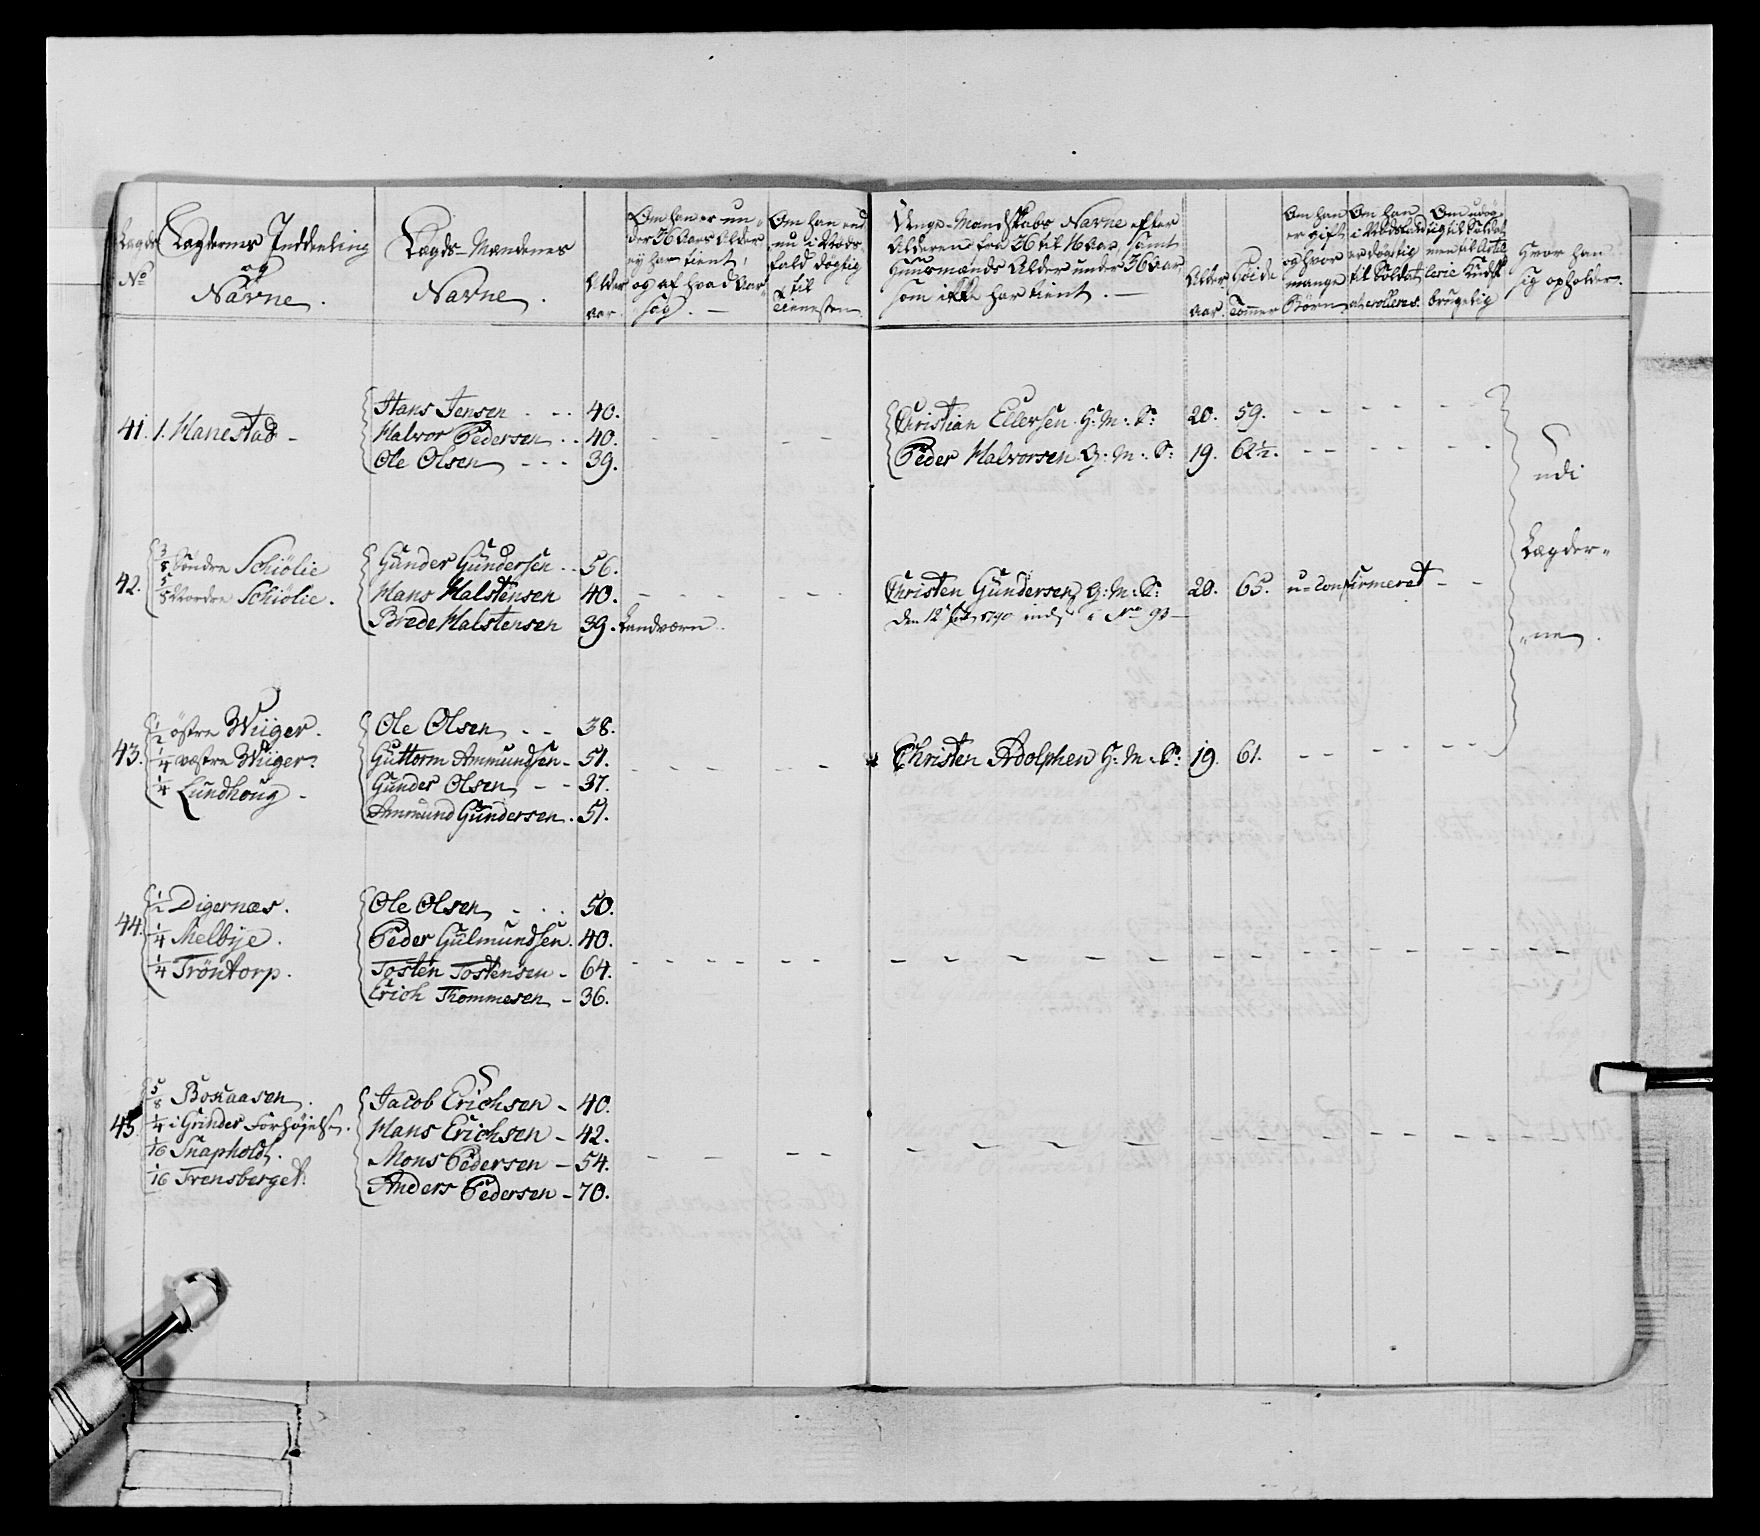 Lægds
No
Lægdernes Inddeeling
og
Navne.
Lægds-Mændenes
Navne.
Alder
aar.
Om han er un-
der 36 Aars Alder
ey har tient,
og af hvad Aar-
sag. -
Om han end
nu i Nøds
fald døgtig
til
Tienesten.
Unge-Mandskabs Navne efter
Alderen fra 36 til 16 Aar, samt
Huusmænds Alder under 36 Aar,
som ikke har tient. -
Alder
aar.
Høide
Tommer
Om han
er gift
og hvor
mange
Børn.
Om han
er døgtig
til Soldat
Om udøg-
tig til Soldat
men til Artil-
lerie Kudsk
brugelig
Hvor han
sig opholder.
41. 1. Hanestad -
Hans Jensen . - . 40.
Halvor Pedersen . . 40. - - - -
Ole Olsen - - - 39.
Christian Ellersen H: M: S: 20. 59. - - - - -
Peder Halvorsen G: M: S: 19. 62½. - - - - -
udi
Lægder-
-ne.
42.
3/8 Søndre Schiølie
5/8 Nordre Schiølie.
Gunder Gundersen . . 56.
Hans Halstensen 40. - - - - - -
Brede Halstensen 39. Landværn.
Christen Gundersen G: M: S: 20. 65. u-confirmeret - -
den 12 1790 inds i No 93 -
43.
½ østre Wiiger.
¼ væstre Wiiger.
¼ Lundhoug -
Ole Olsen . - 38.
Guttorm Ammundsen - 51.
Gunder Olsen - - 37.
Ammund Gundersen . 51.
Christen Adolphen H: M: S: 19. 61. - - - - - -
44.
½ Digernæs.
¼ Melbye.
¼ Trøntorp.
Ole Olsen - . . 50.
Peder Gulmundsen. 40.
Tosten Tostensen - 64.
Erich Thommesen - 36.
45.
5/8 Boxaasen.
¼ i Grinder Forhøjelse.
1/16 Snapholdt.
1/16 Trensberget.
Jacob Erichsen - 40.
Hans Erichsen - 42.
Mons Pedersen - 54.
Anders Pedersen - 70.